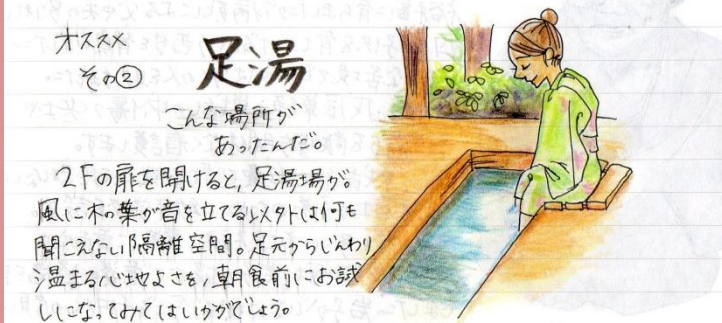 オススメ
その②
足湯
こんな場所が
あったんだ。
2Fの扉を開けると、足湯場が。
風に木の葉が音を立てる以外は何も
聞こえない隔離空間。足元からじんわり
温まる心地よさを、朝食前にお試
しになってみてはいかがでしょう。